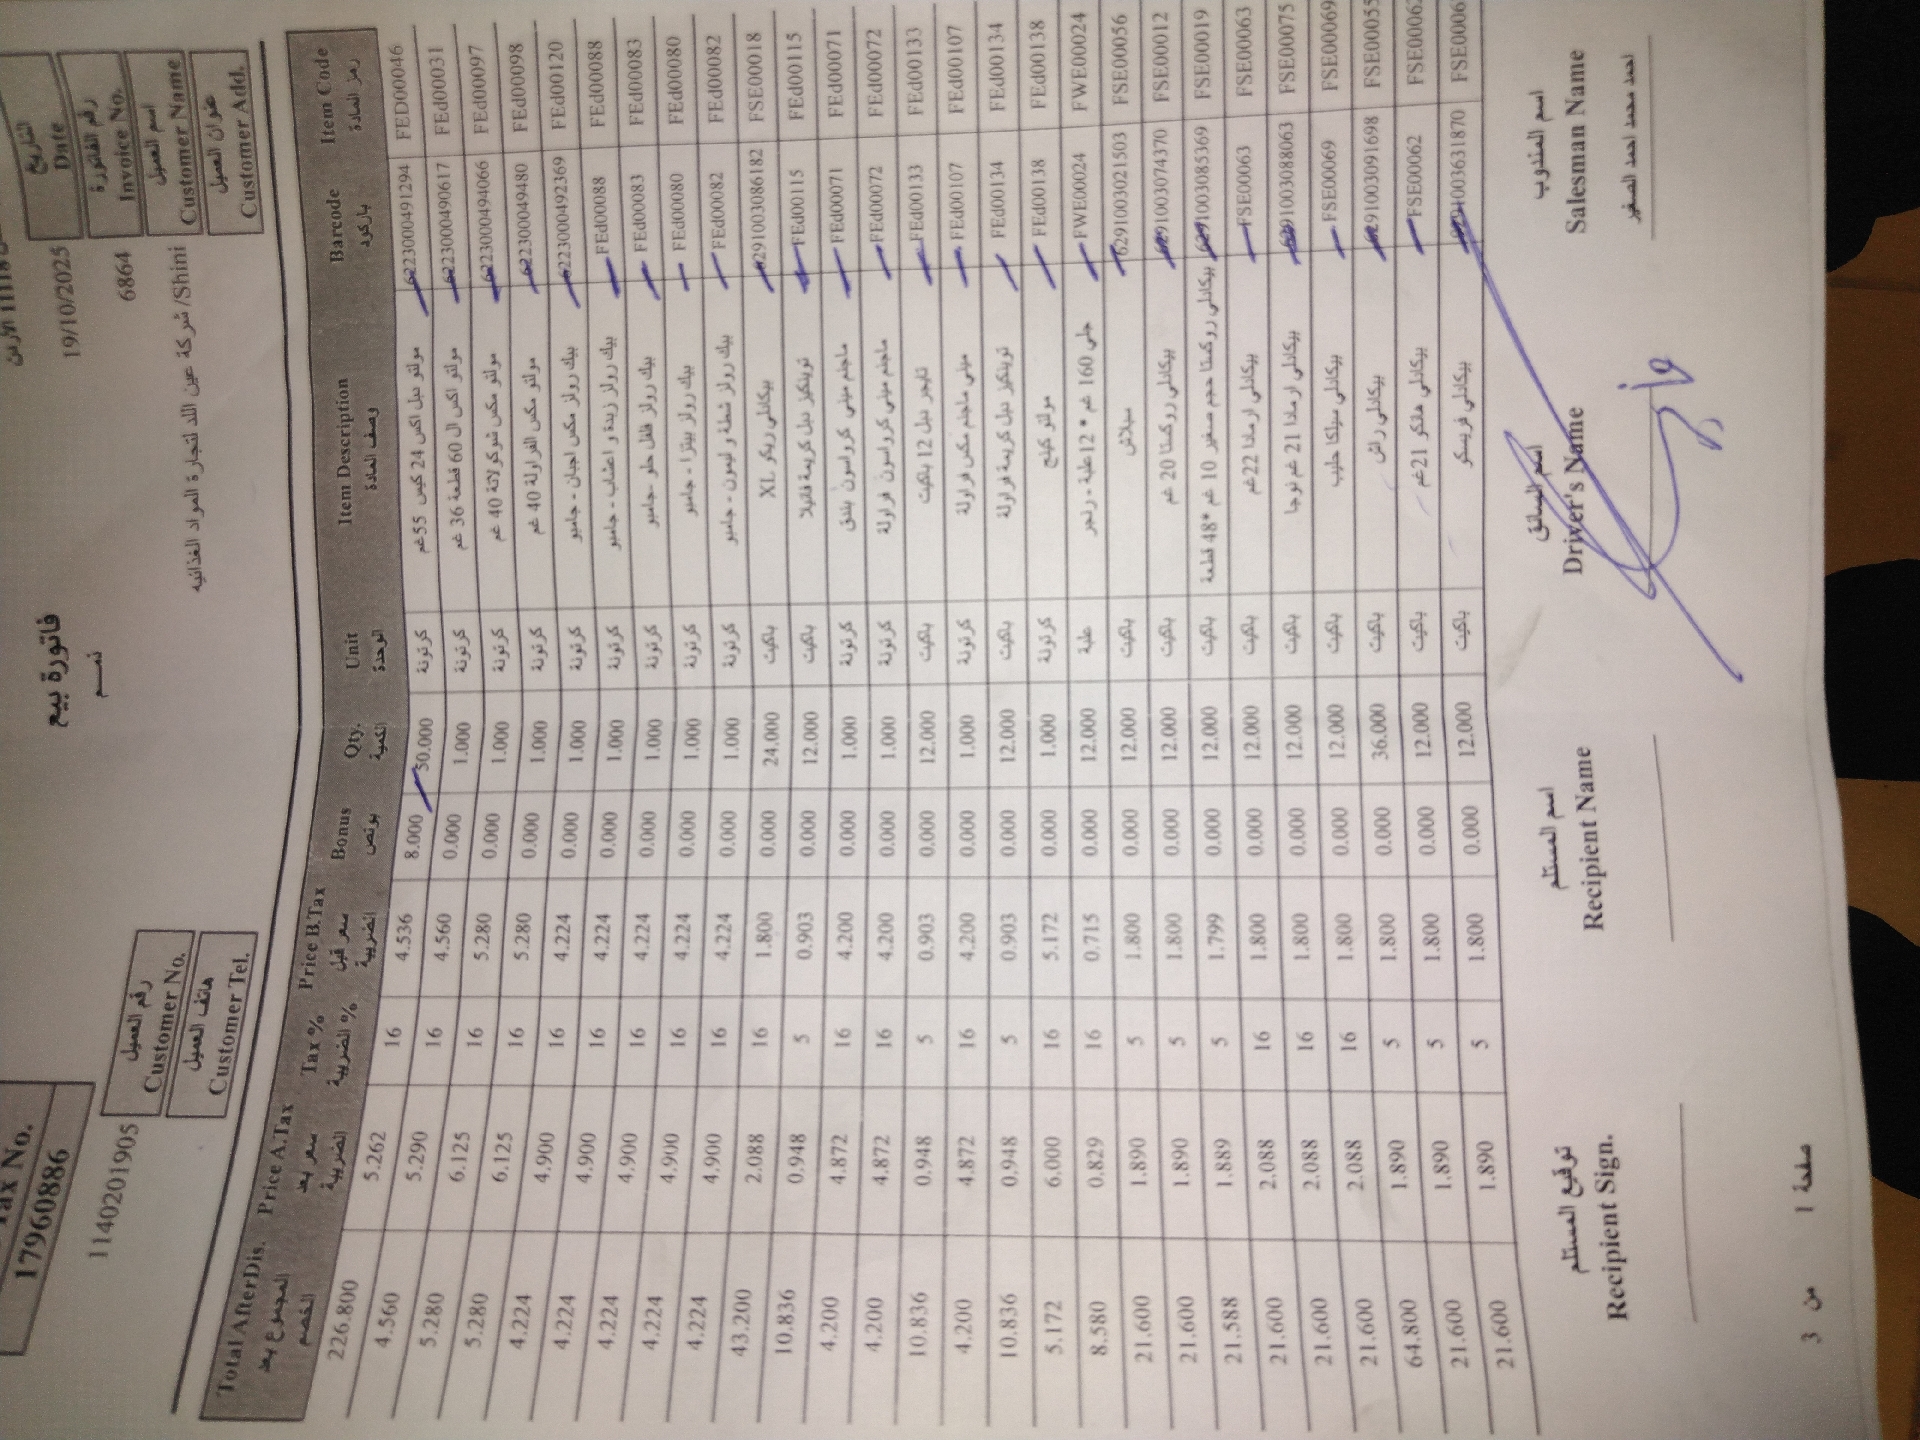 فاتورة بيع
ذمم
Tax No.
179608886
التاريخ
Date
19/10/2025
رقم الفاتورة
Invoice No.
6864
اسم العميل
Customer Name
شركة عين اللد لتجارة المواد الغذائيه /Shini
عنوان العميل
Customer Add.
رقم العميل
Customer No.
11402201905
هاتف العميل
Customer Tel.
Item Code Barcode Item Description Unit Qty. Bonus Price B.Tax Tax % Price A.Tax Total AfterDis.
رمز المادة باركود وصف المادة الوحدة الكمية بونص سعر قبل الضريبة الضريبة % سعر بعد الضريبة المجموع بعد الخصم
FED00046 6223000491294 مولتو دبل اكس 24 كيس 55 غم كرتونة 50.000 8.000 4.536 16 5.262 226.800
FEd00031 6223000490617 مولتو اكس ال 60 قطعة 36 غم كرتونة 1.000 0.000 4.560 16 5.290 4.560
FEd00097 6223000494066 مولتو مكس شوكولاتة 40 غم كرتونة 1.000 0.000 5.280 16 6.125 5.280
FEd00098 6223000049480 مولتو مكس الفراولة 40 غم كرتونة 1.000 0.000 5.280 16 6.125 5.280
FEd00120 6223000492369 بيك رولز مكس اجبان - جامبو كرتونة 1.000 0.000 4.224 16 4.900 4.224
FEd00088 FEd00088 بيك رولز زبدة و اعشاب - جامبو كرتونة 1.000 0.000 4.224 16 4.900 4.224
FEd00083 FEd00083 بيك رولز فلفل حلو -جامبو كرتونة 1.000 0.000 4.224 16 4.900 4.224
FEd00080 FEd00080 بيك رولز بيتزا - جامبو كرتونة 1.000 0.000 4.224 16 4.900 4.224
FEd00082 FEd00082 بيك رولز شطة و ليمون - جامبو كرتونة 1.000 0.000 4.224 16 4.900 4.224
FSE00018 6291003086182 بيكانلي ريكو XL باكيت 24.000 0.000 1.800 16 2.088 43.200
FEd00115 FEd00115 توينكيز دبل كريمة فانيلا باكيت 12.000 0.000 0.903 5 0.948 10.836
FEd00071 FEd00071 ماجنم ميني كرواسون بندق كرتونة 1.000 0.000 4.200 16 4.872 4.200
FEd00072 FEd00072 ماجنم ميني كرواسون فراولة كرتونة 1.000 0.000 4.200 16 4.872 4.200
FEd00133 FEd00133 تايجر تيل 12 باكيت باكيت 12.000 0.000 0.903 5 0.948 10.836
FEd00107 FEd00107 ميني ماجنم مكس فراولة كرتونة 1.000 0.000 4.200 16 4.872 4.200
FEd00134 FEd00134 توينكيز دبل كريمة فراولة باكيت 12.000 0.000 0.903 5 0.948 10.836
FEd00138 FEd00138 مولتو كينج كرتونة 1.000 0.000 5.172 16 6.000 5.172
FWE00024 FWE00024 جلي 160 غم * 12 علبة - رنجر علبة 12.000 0.000 0.715 16 0.829 8.580
FSE00056 6291003021503 سبلاش باكيت 12.000 0.000 1.800 5 1.890 21.600
FSE00012 6291003074370 بيكانلي روكستا 20 غم باكيت 12.000 0.000 1.800 5 1.890 21.600
FSE00019 6291003085369 بيكانلي روكستا حجم صغير 10 غم *48 قطعة باكيت 12.000 0.000 1.799 5 1.889 21.588
FSE00063 FSE00063 بيكانلي ارمادا 22غم باكيت 12.000 0.000 1.800 16 2.088 21.600
FSE00075 6291003088063 بيكانلي ارمادا 21 غم نوجا باكيت 12.000 0.000 1.800 16 2.088 21.600
FSE00069 FSE00069 بيكانلي سيلكا حليب باكيت 12.000 0.000 1.800 16 2.088 21.600
FSE00055 6291003091698 بيكانلي راش باكيت 36.000 0.000 1.800 5 1.890 64.800
FSE00062 FSE00062 بيكانلي هانكر 21غم باكيت 12.000 0.000 1.800 5 1.890 21.600
FSE0006 6291003631870 بيكانلي فريسكو باكيت 12.000 0.000 1.800 5 1.890 21.600
اسم المندوب اسم السائق اسم المستلم توقيع المستلم
Salesman Name Driver's Name Recipient Name Recipient Sign.
احمد محمد احمد الصغير
صفحة 1 من 3